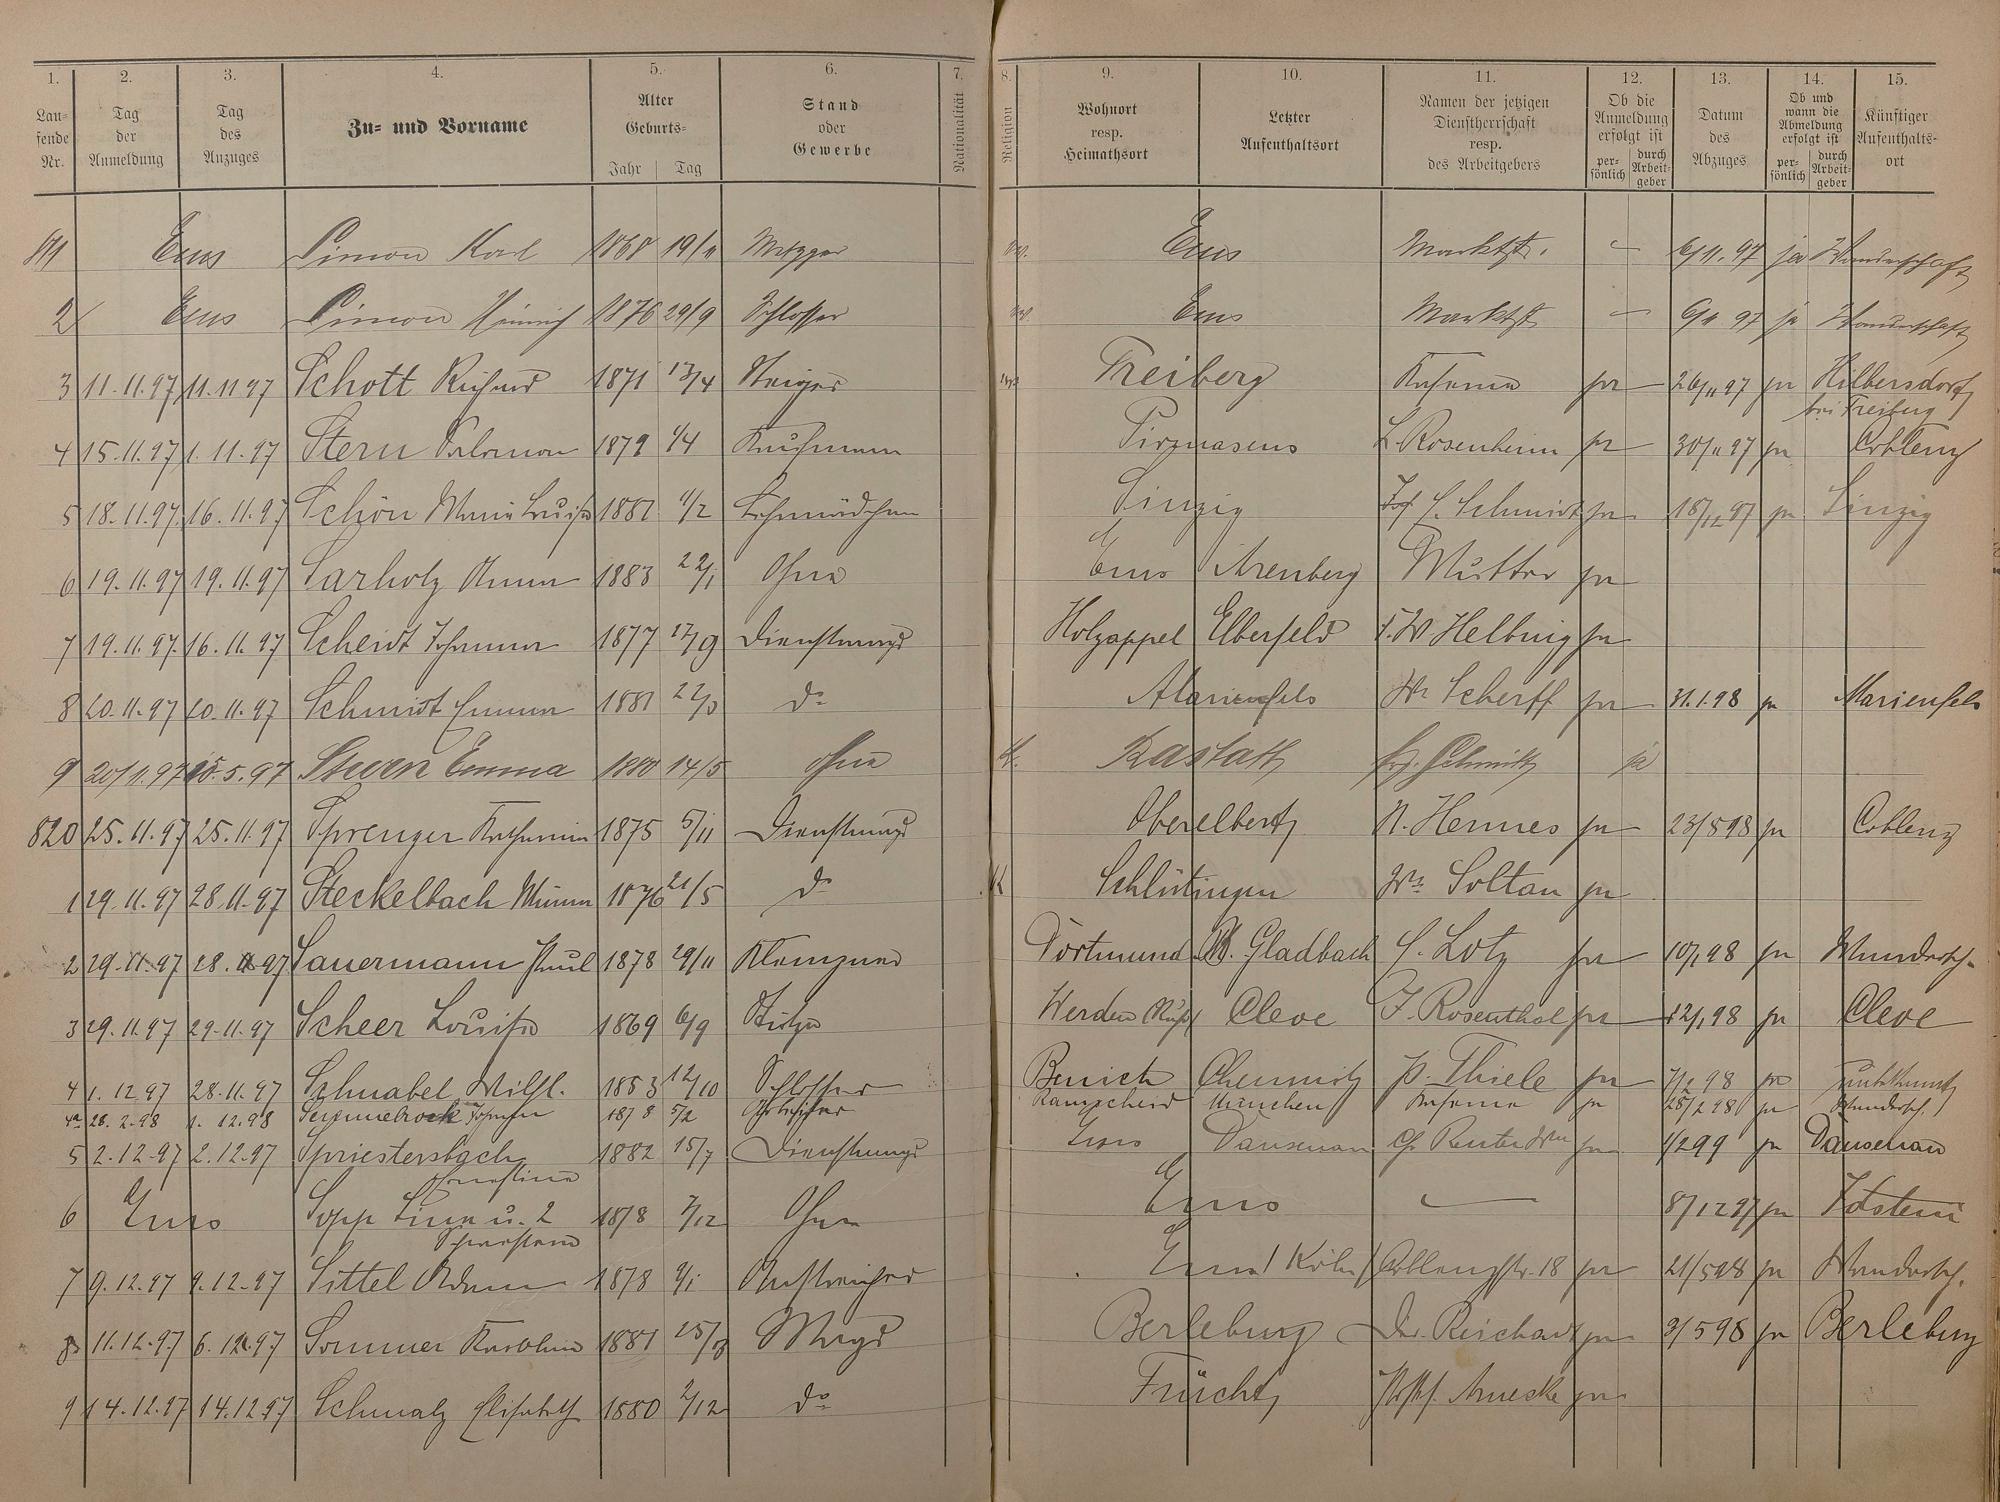 1. 2. 3. 4. 5. 6. 7. 8. 9. 10. 11. 12. 13. 14. 15.
Laufende Nr. Tag der Anmeldung Tag des Anzuges Zu- und Vorname Alter Geburts- Jahr Tag Stand oder Gewerbe Nationalität Religion Wohnort resp. Heimathsort Letzter Aufenthaltsort Namen der jetzigen Dienstherrschaft resp. des Arbeitgebers Ob die Anmeldung erfolgt ist persönlich durch Arbeitgeber Datum des Abzuges Ob und wann die Abmeldung erfolgt ist persönlich durch Arbeitgeber Künftiger Aufenthaltsort
811 Ems Simon Karl 1868 19/11 Metzger Ems Marktstr. – 6/11.97 ja Wanderschaft
2 Ems Simon Heinrich 1876 29/9 Schlosser Ems Marktstr – 6/11 97 ja Wanderschaft
3 11.11.97 11.11 97 Schott Richard 1871 13/4 Steiger Freiberg Kaserne ja 26/11 97 ja Hilbersdorf bei Freiberg
4 15.11.97 1.11.97 Stern Salomon 1879 1/4 Kaufmann Pirmasens L. Rosenheim ja 30/11 97 ja Coblenz
5 18.11.97. 16.11.97 Schön Maria Louise 1881 1/2 Lehrmädchen Sinzig Jos. C. Schmidt ja 18/12 97 ja Sinzig
6 19.11.97 19.11.97 Sarholz Anna 1883 22/1 Ohne Ems Arenberg Mutter ja
7 19.11.97. 16.11.97 Scheidt Johanna 1877 17/9 Dienstmagd Holzappel Elberfeld F. W Helbing ja
8 20.11.97 20.11.97 Schmidt Emma 1881 22/3 do Marienfels Scherff ja 31.1.98 ja Marienfels
9 20/11.97 15.5.97 Stern Emma 1880 14/5 ohne K. Rastatt Schmitt ja
820 25.11.97 25.11.97 Sprenger Katharina 1875 5/11 Dienstmagd Oberelbert N. Hermes ja 23/5 98 ja Coblenz
1 29.11.97 28.11.97 Steckelbach Minna 1876 21/5 do K Schlüttingen Wwe Soltau ja
2 29.11.97 28.11.97 Sauermann Paul 1878 29/11 Klempner Dortmund M. Gladbach C. Lotz ja 10/1 98 ja Wandersch.
3 29.11.97 29.11.97 Scheer Louise 1869 6/9 Stütze Werden Cleve J. Rosenthal ja 12/1 98 ja Cleve
4 1.12.97 28.11.97 Schnabel Wilh. 1853 12/10 Schlosser Chemnitz P. Thiele ja 7/2 98 ja
4a 28.2.98 1.12.98 1878 5/2 Remscheid München Kaserne ja 28/2 98 ja Wandersch.
5 2.12.97 2.12.97 Spriestersbach Ernestine 1882 15/7 Dienstmagd Ems Dausenau Ch. Reuter Wwe ja 1/2 99 ja Dausenau
6 Ems Sopp Lina u. 2 Schwestern 1878 7/12 Ohne Ems — 8/12 97 ja Idstein
7 9.12.97 9.12.97 Sittel Adam 1878 9/1 Anstreicher Ems / Köln / Coblenzstr. 18 ja 21/5 98 ja Wandersch.
8 11.12.97 6.12.97 Sommer Karoline 1881 25/3 Magd Berleburg Dr. Reichardt ja 3/5 98 ja Berleburg
9 14.12.97 14.12.97 Schmalz Elisabeth 1880 2/12 do Frücht ja